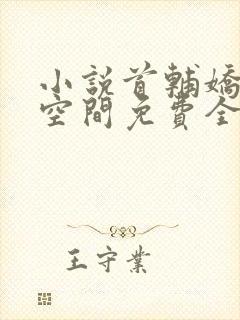 小說首輔嬌
空間免費全
王守業